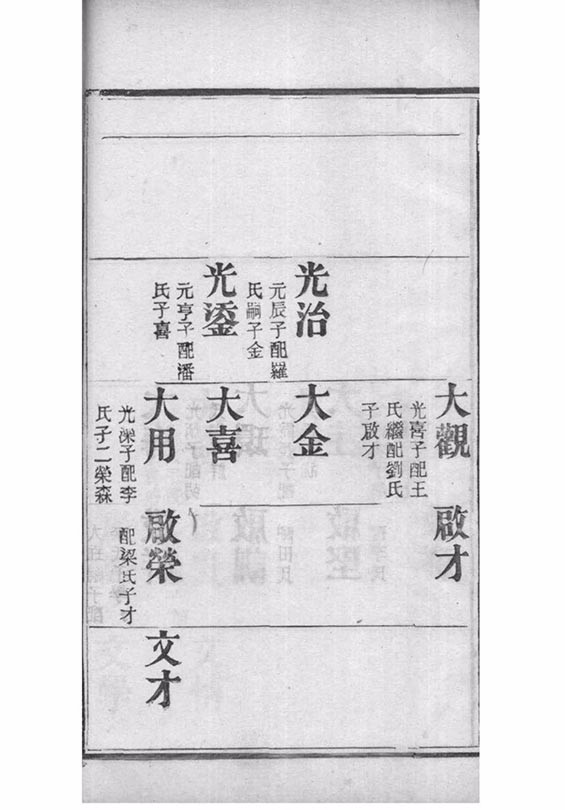 大觀
光喜子配王
氏繼配劉氏
子啟才
啟才
光治
元辰子配羅
氏嗣子金
大金
光鎏
元亨子配潘
氏子喜
大喜
大用
光濼子配李
氏子二榮森
啟榮
配梁氏子才
文才